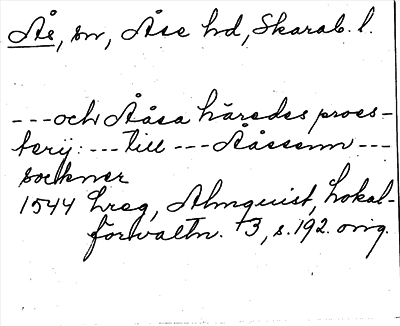 Ås, sn, Åse hd, Skarab. l.
---och Ååsa häredes proes-
terij: --- till --- Ååssenn ---
sockner
1544 Lreg, Almquist, Lokal-
förvaltn. 3, s. 192. orig.